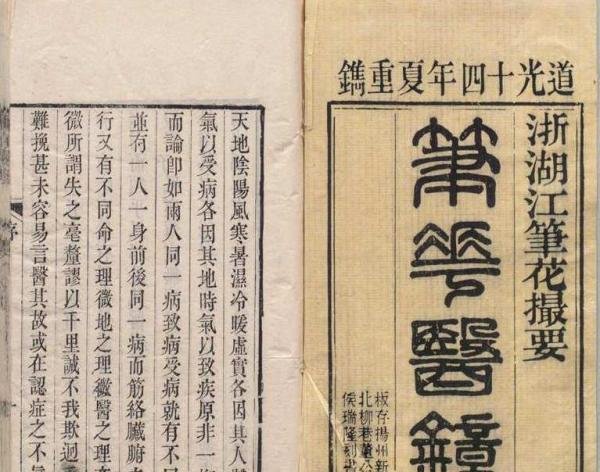 道光十四年夏重鐫
浙湖江筆花撮要
筆花醫鏡
板存揚州新
北柳巷董公
侯瑞隆刻
天地陰陽風寒暑濕冷暖虛實各因其人
氣以受病各因其地時氣以致疾原非一
而論卽如兩人同一病致病受病就有不同
並有一人一身前後同一病而筋絡臟腑
行又有不同命之理微地之理微醫之理
微所謂失之毫釐謬以千里誠不我欺迴
難挽甚未容易言醫其故或在認症之不
序
一